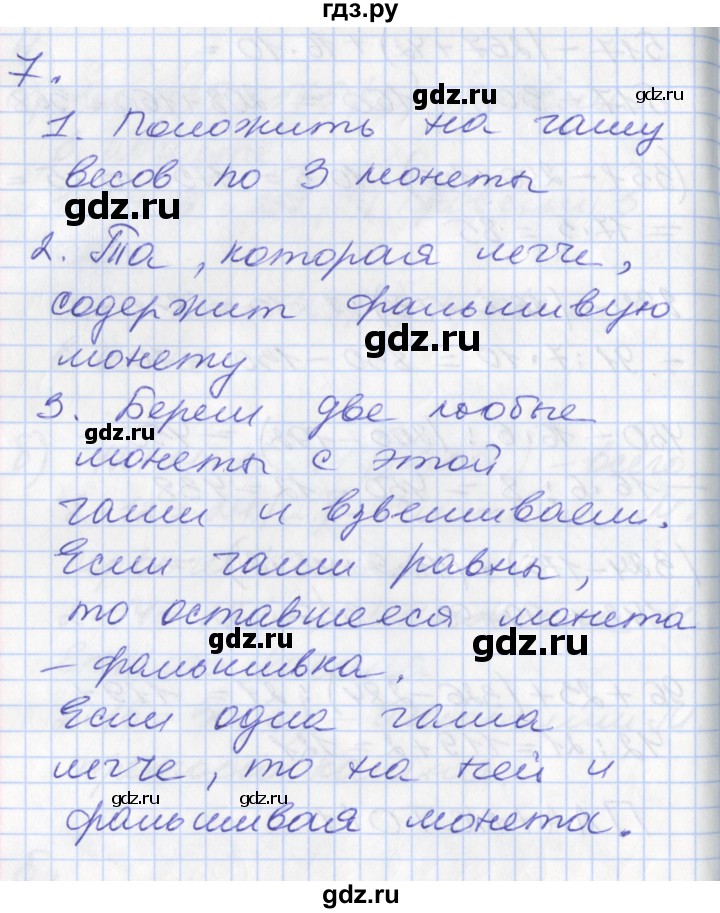 гдз.ру
7.
gdz.ru
1. Положить на чашу
весов по 3 монеты
gdz.ru
2. Та, которая легче,
содержит фальшивую
gdz.ru
монету
3. Берем две любые
gdz.ru
монеты с этой
чаши и взвешиваем.
Если чаши равны,
то оставшееся монета
gdz.ru
– фальшивка.
Если одна чаша
легче, то на ней и
gdz.ru gdz.ru
фальшивая монета.
gdz.ru